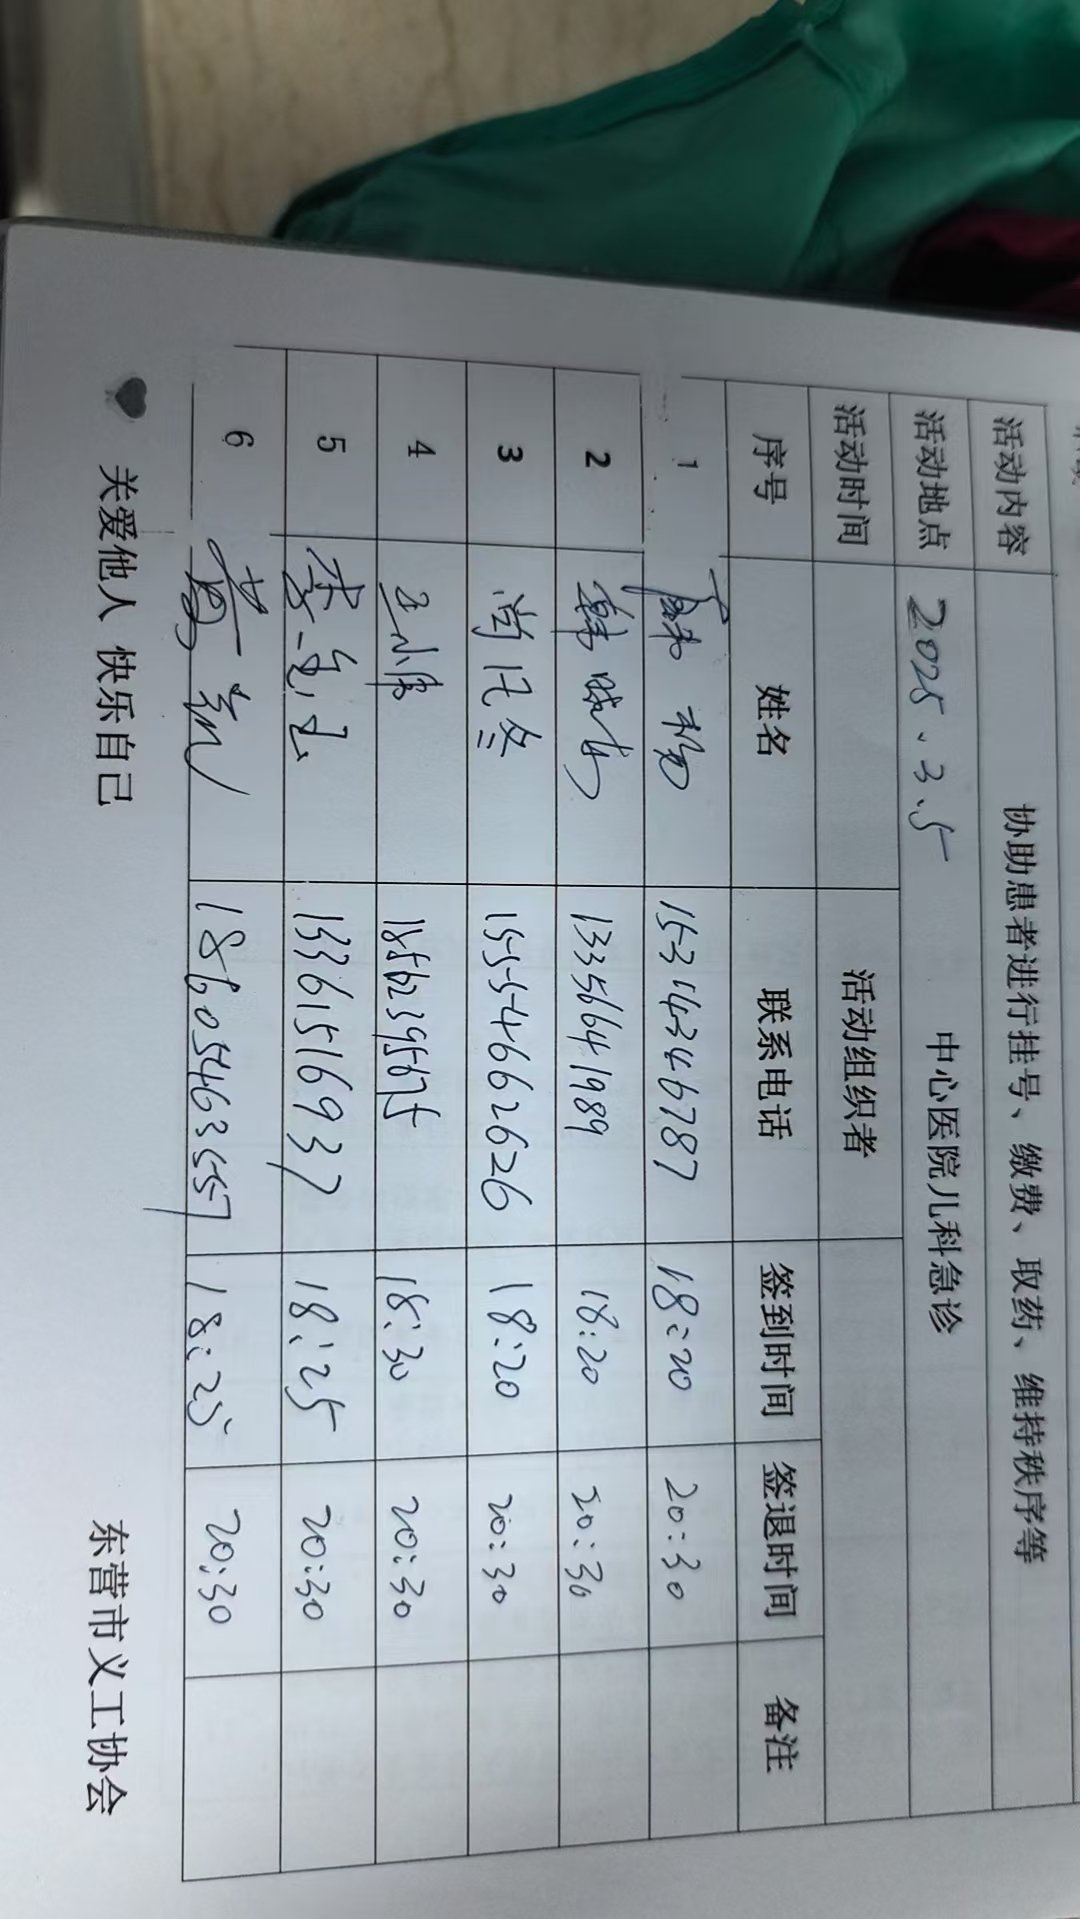 活动内容 协助患者进行挂号、缴费、取药、维持秩序等
活动地点 2025.3.5 中心医院儿科急诊
活动时间 活动组织者
序号 姓名 联系电话 签到时间 签退时间 备注
1 153142346787 18:20 20:30
2 13356641989 18:20 20:30
3 尚仁冬 15554662626 18:20 20:30
4 王小倩 18562395675 18:30 20:30
5 13361516937 18:25 20:30
6 18605463557 18:25 20:30
关爱他人 快乐自己 东营市义工协会